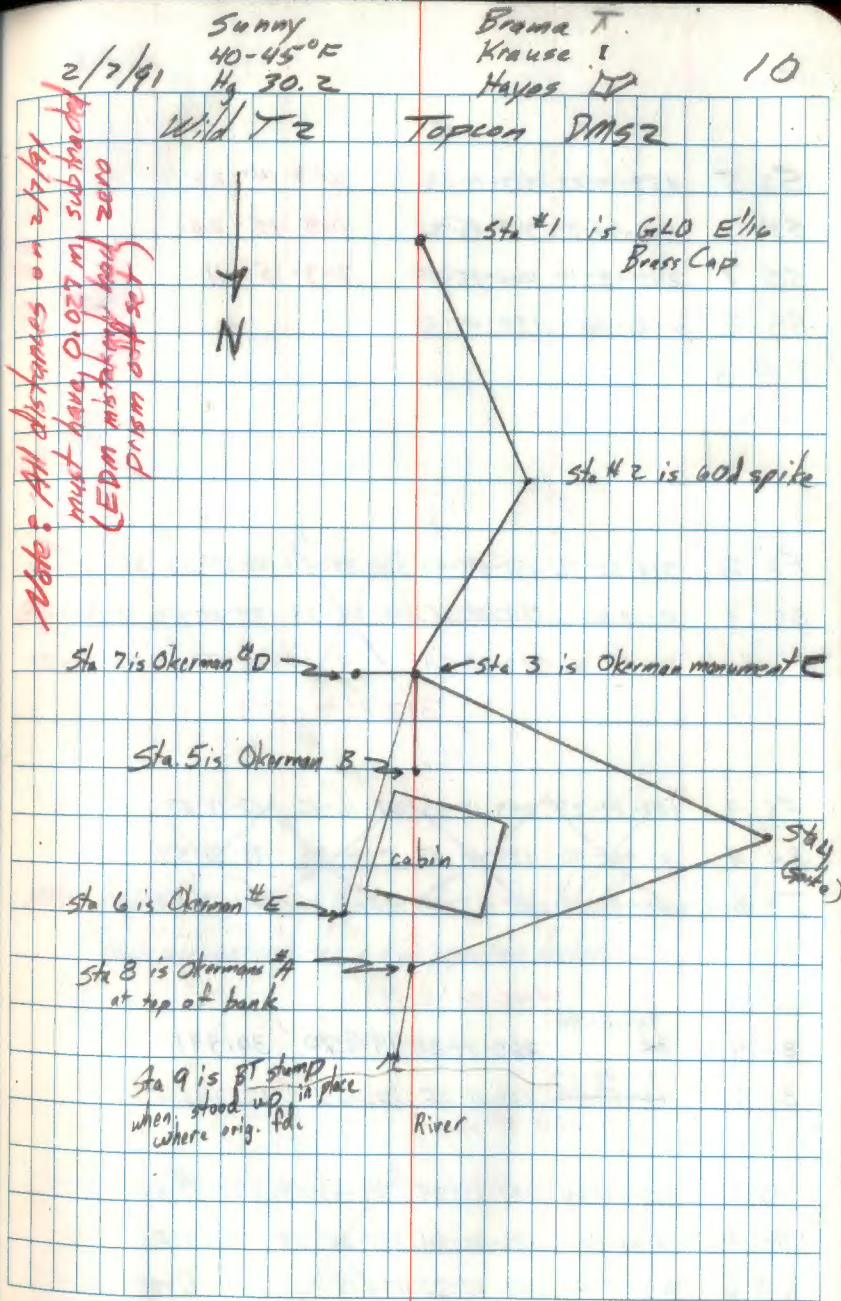 Sunny
40-45°F
Hg 30.2
2/7/91
Brama
Krause
Hayes
10
Wild T2 Topcon DMS2
Note: All distances on 2/7/91
must have 0.027 m subtracted
(EDM mistakenly had zero
prism offset)
N
Sta #1 is GLO E 1/16
Brass Cap
Sta #2 is 60d spike
Sta 7 is Okerman #D
Sta 3 is Okerman monument C
Sta. 5 is Okerman B
cabin
Sta 4
Sta 6 is Okerman #E
Sta 8 is Okermans #A
at top of bank
Sta 9 is BT stump
when stood up in place
where orig. fd.
River